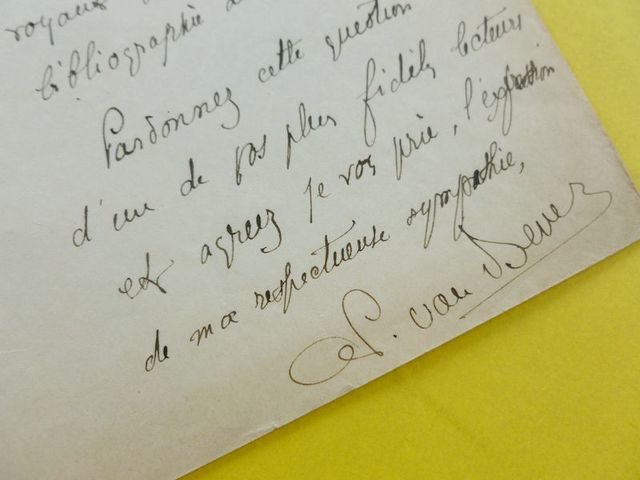 bibliographie
Pardonnez cette question
d'un de vos plus fidèles lecteurs
et agreez je vous prie, l'expression
de ma respectueuse sympathie,
van